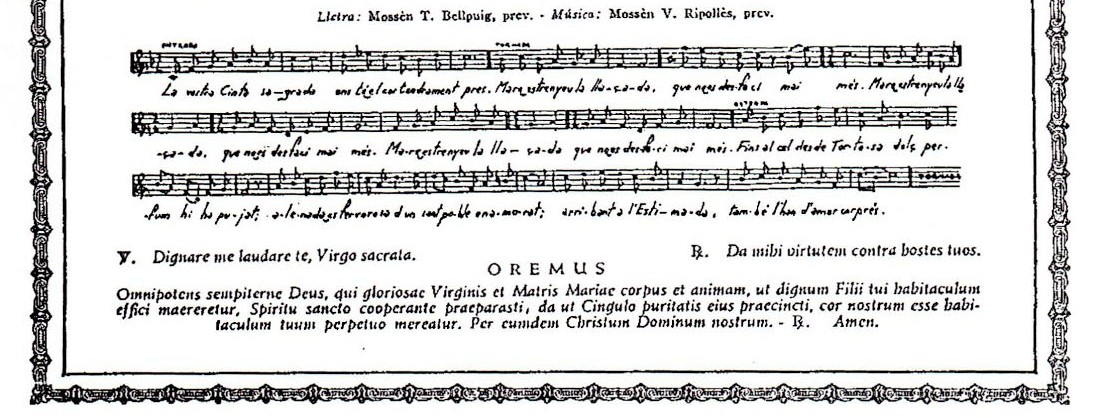 Lletra: Mossèn T. Bellpuig, prev. - Música: Mossèn V. Ripollès, prev.
ENTRADA
TORNADA
La vostra Cinta sa-grada ens té el cor tendrament pres. Mare, estrenyeu la lla-ça-da, que no es des-fa-ci mai més. Mare, estrenyeu la lla
ESTROFA
-ça-da, que no es desfaci mai més. Ma-re, estrenyeu la lla-ça-da que no es desfa-ci mai més. Fins al cel des de Tor-to-sa dolç per-
TORNADA
-fum hi ha pu-jat; a-le-nada es fervorosa d'un sant po-ble ena-mo-rat; arri-bant a l'Esti-ma-da, tam-bé l'han d'amor corprés.
℣. Dignare me laudare te, Virgo sacrata. ℟. Da mihi virtutem contra hostes tuos.
OREMUS
Omnipotens sempiterne Deus, qui gloriosae Virginis et Matris Mariae corpus et animam, ut dignum Filii tui habitaculum
effici maereretur, Spiritu sancto cooperante praeparasti, da ut Cingulo puritatis eius praecincti, cor nostrum esse habi-
taculum tuum perpetuo mereatur. Per eumdem Christum Dominum nostrum. - ℟. Amen.